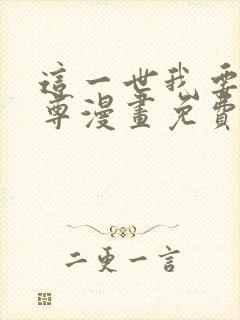 這一世我要
尊漫畫免費
二更一言